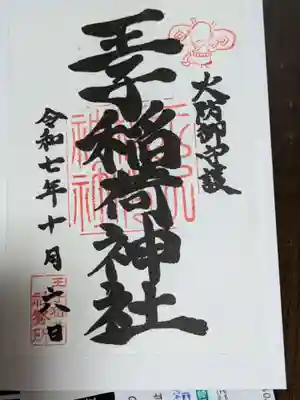 火防御守護
王子稲荷神社
令和七年十月六日